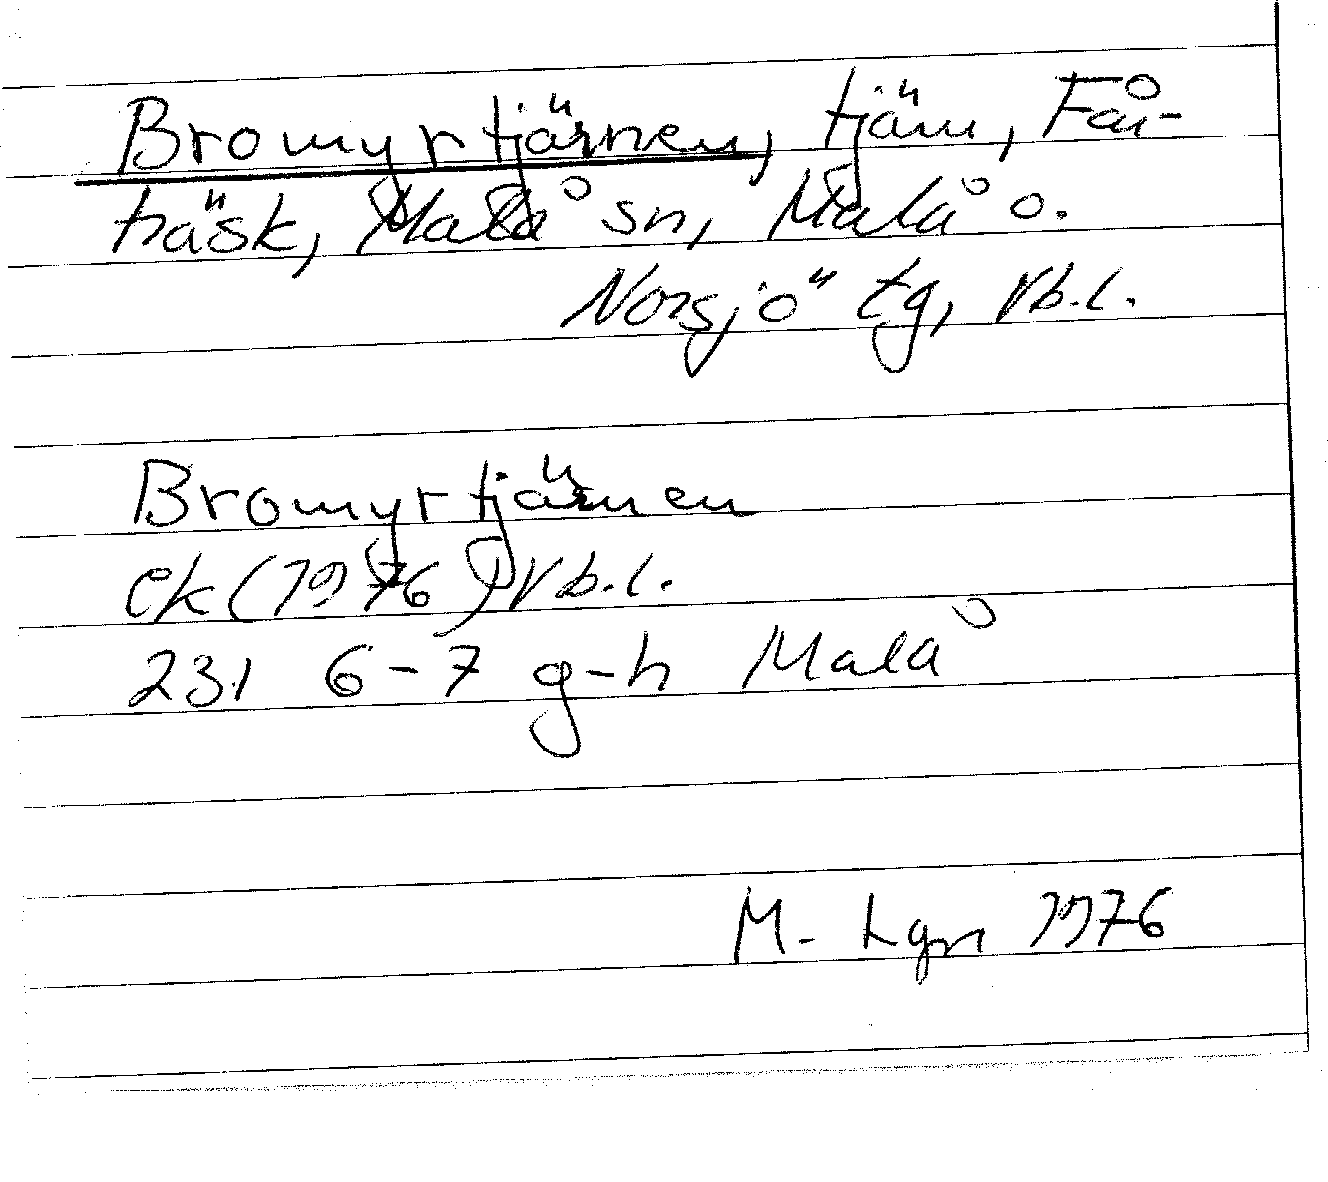 Bromyrtjärnen, tjärn, Får-
träsk, Malå sn, Malå o.
Norsjö tg, Vb.l.
Bromyrtjärnen
ek (1976) Vb.l.
231 6-7 g-h Malå
M. Lgn 1976